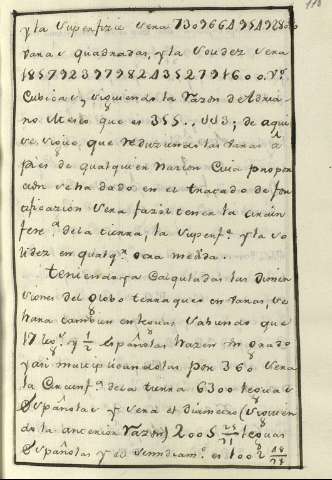 y la superfizie sera 730966495492800
Varas quadradas, y la soudez sera
1857923779824352791600 Vs
Cubicas, siguiendo la Razon de Adria-
no Mesio que es 355..113; de aqui
se sigue que reduzindo las varas à
pies de qualquier nazion Cuia propor
cion se ha dado en el tractado de for
tificazion sera fazil tener la circun
ferª de la tierra, la superfª y la so
lidez en qualqª otra medida.
Teniendo ya Calculadas las Dimen
siones del globo terraqueo en varas, se
hara tambien en leguas sabiendo que
17 legs y 1/2 Españolas hazen un grado
y asi multiplicandolas por 360 sera
la Circunfª de la tierra 6300 leguas
Españolas y sera el diametro (siguien
do la anterior Razon) 2005 leguas
Españolas y el semidiamº es 1002